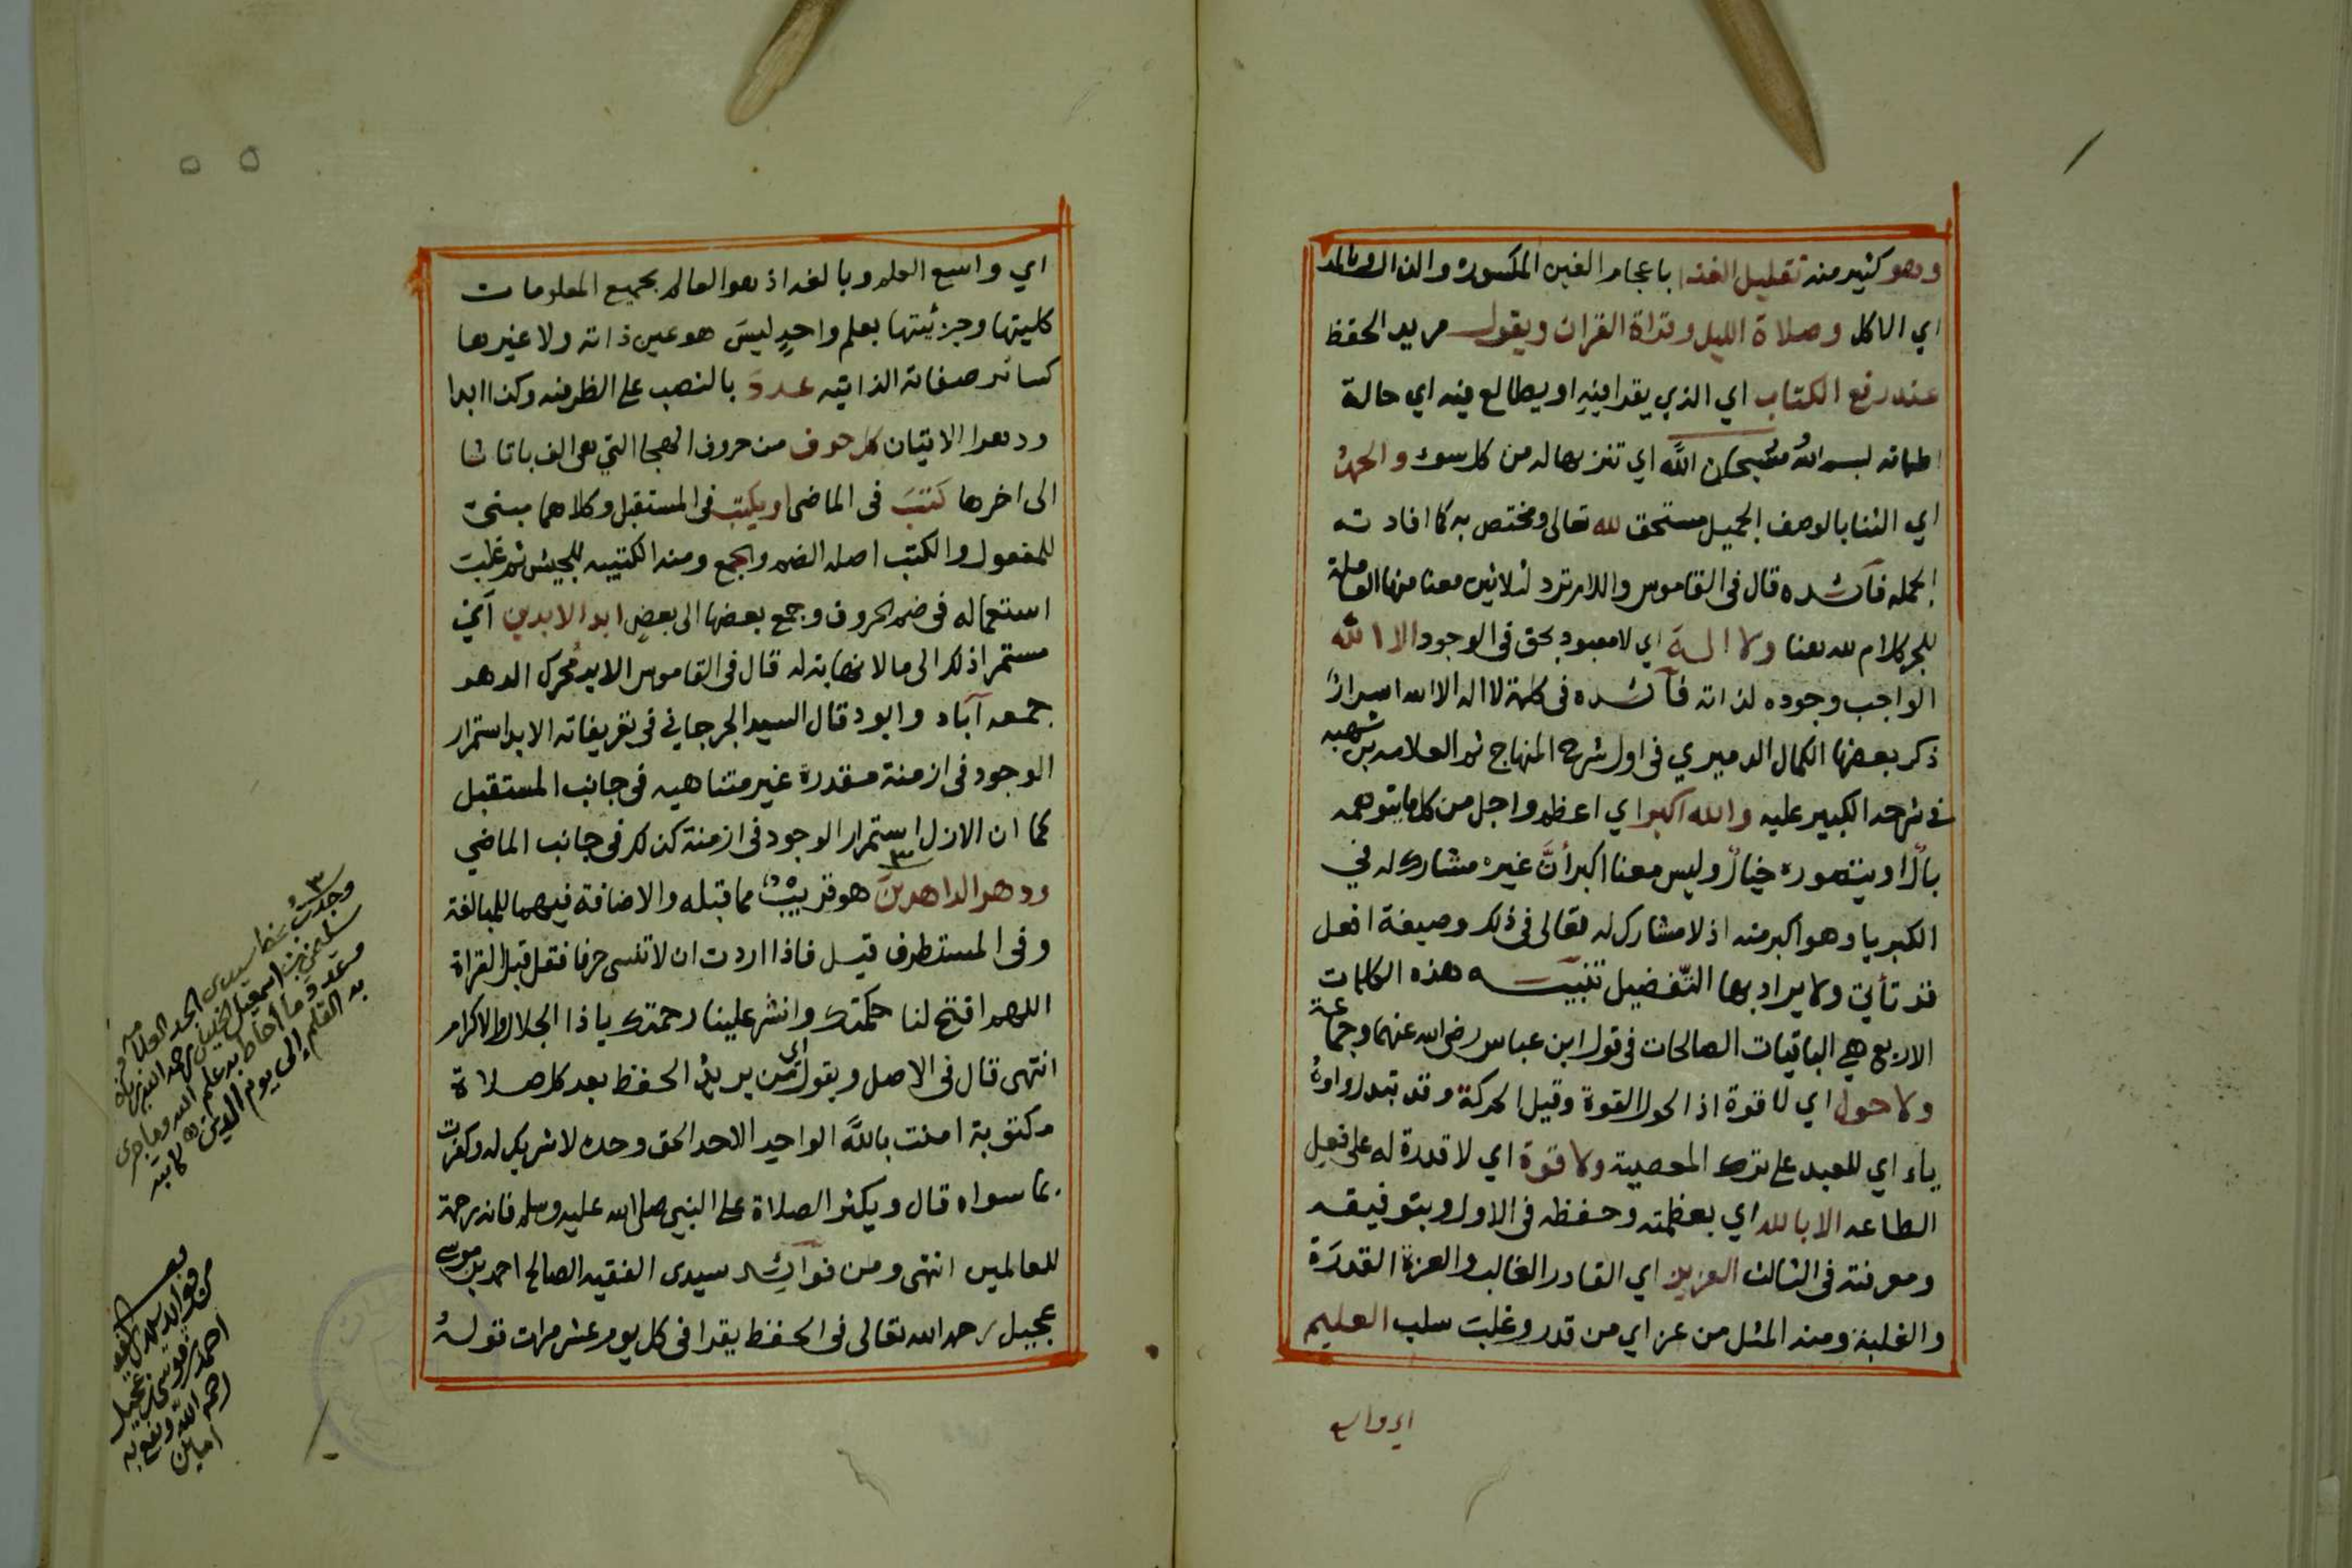 وهو كثير منه تقليل الغذا باعجام الغين المكسورة والذال وبالمد
اي الاكل وصلاة الليل وقراة القران ويقول مريد الحفظ
عند رفع الكتاب اي الذي يقرا فيه او يطالع فيه اي حالة
بسم الله وسبحان الله اي تنزيها له من كل سوء والحمد
اي الثنا بالوصف الجميل مستحق لله تعالى ومختص به كما افادته
الجمله فآئده قال في القاموس واللام ترد لثلاثين معنا منها العاملة
للجر كلام لله معنا ولا الـه اي لا معبود بحق في الوجود الا الله
الواجب وجوده لذاته فآئده في كلمة لا اله الا الله اسرار
ذكر بعضها الكمال الدميري في اول شرح المنهاج ثم العلامه بن شهبه
في شرحه الكبير عليه والله اكبر اي اعظم واجل من كل ما يتوهمه
بالا او يتصوره خيالا وليس معنا اكبر أنَّ غيره مشارك له في
الكبريا وهو اكبر منه اذ لا مشارك له تعالى في ذلك وصيغة افعل
قد تأتي ولا يراد بها التّفضيل تنبيه هذه الكلمات
الاربع هي الباقيات الصالحات في قول ابن عباس رضي الله عنهما وجماعة
ولا حول اي لا قوة اذ الحول القوة وقيل الحركة وقد تبدل واوه
ياء اي للعبد على ترك المعصية ولا قوة اي لا قدرة له على فعل
الطاعه الا بالله اي بعظمته وحفظه في الاول وبتوفيقه
ومعرفته في الثالث العزيز اي القادر الغالب والعزة القدرَة
والغلبة ومنه المثل من عز اي من قدر وغلبت سلب العليم
اي واسع
اي واسع العلم وبالغه اذ هو العالم بجميع المعلومات
كليتها وجزئيتها بعلم واحدٍ ليسَ هو عين ذاته ولا غيرها
كسائر صفاته الذاتيه عددَ بالنصب على الظرفيه وكذا ابدا
ودهرا الاتيان كل حرف من حروف الهجا التي هي الف با تا ثا
الى اخرها كتبَ في الماضي او يكتب في المستقبل وكلاهما مبنيّ
للمفعول والكتب اصله الضم والجمع ومنه الكتيبه للجيش ثم غلبت
استعماله في ضم الحروف وجمع بعضها الى بعضٍ ابد الابدين آي
مستمرا ذلك الى ما لا نهاية له قال في القاموس الابد محرك الدهر
جمعه آباد وابود قال السيد الجرجاني في تعريفاته الابد استمرار
الوجود في ازمنة مقدرة غير متناهيه في جانب المستقبل
كما ان الازل استمرار الوجود في ازمنة كذلك في جانب الماضي
ودهر الداهرينَ هو قريبٌ مما قبله والاضافة فيهما للمبالغة
وفي المستطرف قيل فاذا اردت ان لا تنسى حرفا فقل قبل القراة
اللهم افتح لنا حكمتك وانشر علينا رحمتك ياذا الجلال والاكرام
انتهى قال في الاصل ويقول اي من يريد الحفظ بعد كل صلاة
مكتوبة امنت باللَّه الواحد الاحد الحق وحده لا شريك له وكفرت
بما سواه قال ويكثر الصلاة على النبي صلى الله عليه وسلم فانه رحمة
للعالمين انتهى ومن فوآئد سيدى الفقيه الصالح احمد بن موسى
عجيل رحمه الله تعالى في الحفظ يقرا في كل يوم عشر مرات قوله
٣
وجدت بخط سيدى الجد العلامه
سليمن بن اسمعيل رحمه الله
وعدد ما أحاط به علم الله وما جرى
به القلم إلى يوم الدين كاتبه
من فوائد سيدى الفقيه
احمد بن موسى عجيل
رحمه الله ونفع به
امين